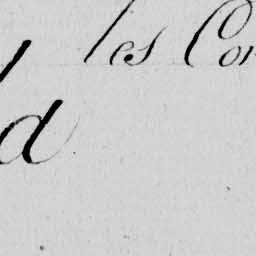 les Con
d